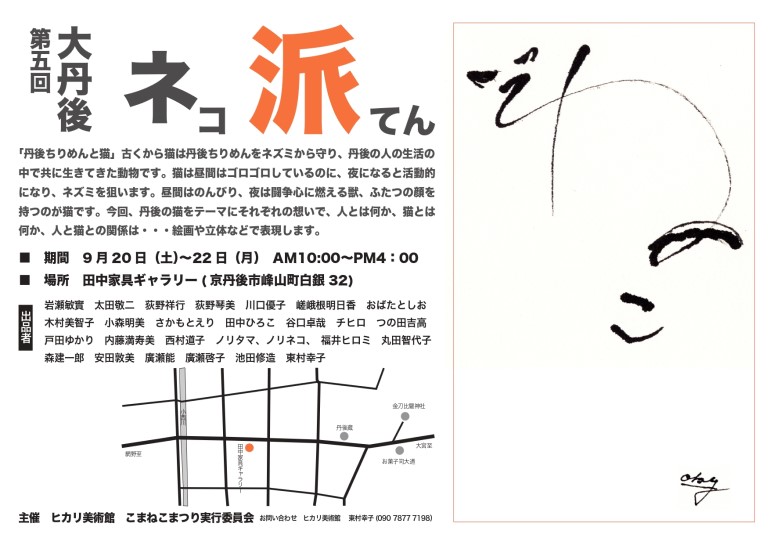 第五回
大丹後
ネコ派てん
「丹後ちりめんと猫」古くから猫は丹後ちりめんをネズミから守り、丹後の人の生活の
中で共に生きてきた動物です。猫は昼間はゴロゴロしているのに、夜になると活動的
になり、ネズミを狙います。昼間はのんびり、夜は闘争心に燃える獣、ふたつの顔を
持つのが猫です。今回、丹後の猫をテーマにそれぞれの想いで、人とは何か、猫とは
何か、人と猫との関係は・・・絵画や立体などで表現します。
■ 期間 9月20日（土）〜22日（月） AM10:00〜PM4：00
■ 場所 田中家具ギャラリー ( 京丹後市峰山町白銀 32)
出品者
岩瀬敏實 太田敬二 荻野祥行 荻野琴美 川口優子 嵯峨根明日香 おばたとしお
木村美智子 小森明美 さかもとえり 田中ひろこ 谷口卓哉 チヒロ つの田吉高
戸田ゆかり 内藤満寿美 西村道子 ノリタマ、ノリネコ、 福井ヒロミ 丸田智代子
森建一郎 安田敦美 廣瀬能 廣瀬啓子 池田修造 東村幸子
金刀比羅神社
丹後蔵
大宮至
お菓子司大道
網野至
田中家具ギャラリー
主催 ヒカリ美術館 こまねこまつり実行委員会 お問い合わせ ヒカリ美術館 東村幸子 (090 7877 7198)
ねこ